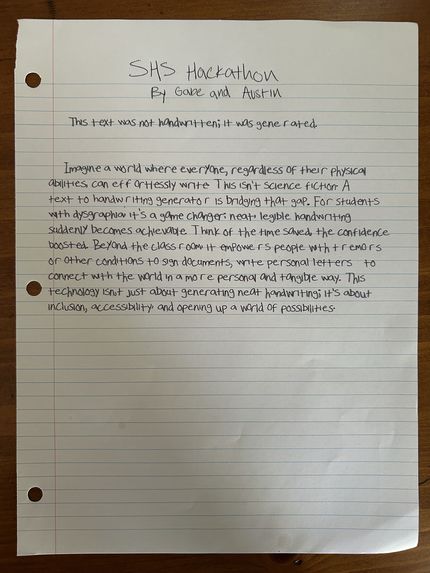 SHS Hackathon
By Gabe and Austin
This text was not handwritten; it was generated.
Imagine a world where everyone, regardless of their physical
abilities, can effortlessly write. This isn't science fiction. A
text to handwriting generator is bridging that gap. For students
with dysgraphia it's a game changer: neat, legible handwriting
suddenly becomes achievable. Think of the time saved, the confidence
boosted. Beyond the classroom it empowers people with tremors
or other conditions to sign documents, write personal letters to
connect with the world in a more personal and tangible way. This
technology isn't just about generating neat handwriting; it's about
inclusion, accessibility and opening up a world of possibilities.